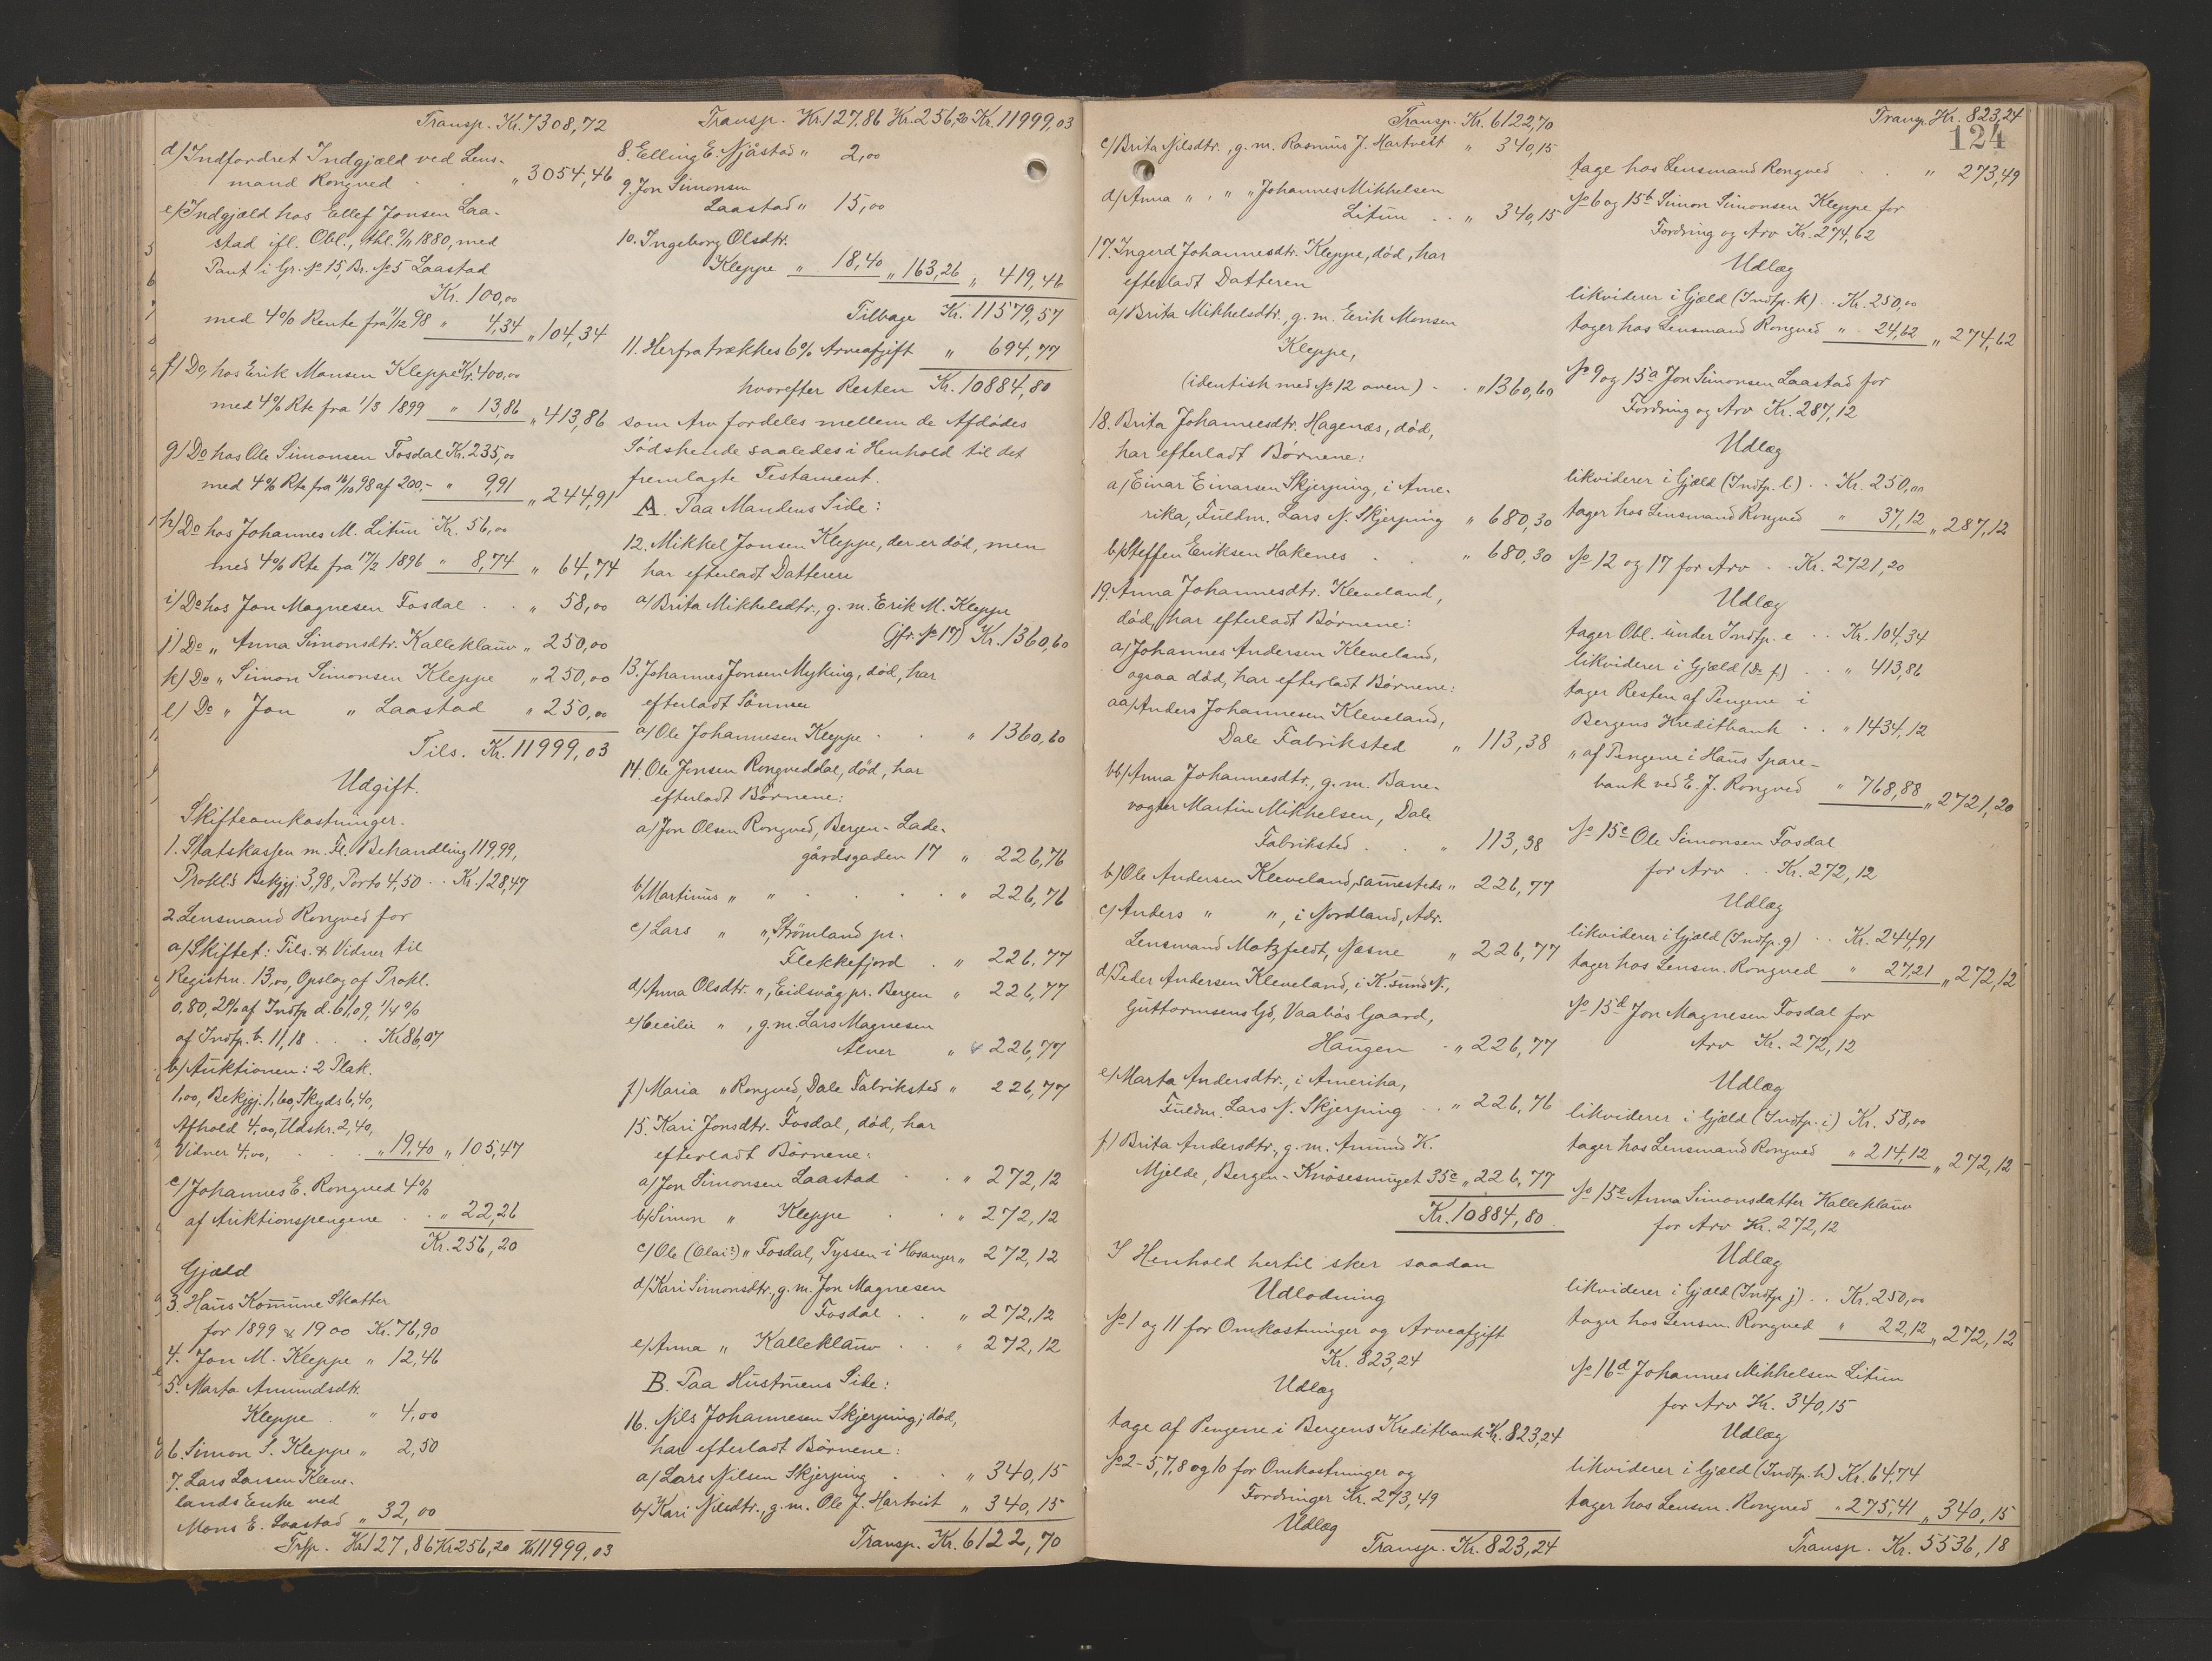 Transp. Kr. 7308,72
d/ Indfordret Indgjæld ved Lens-
mand Rongved . . „ 3054,46
e/ Indgjæld hos Ellef Jonsen Laa-
stad ifl. Obl., thl. 9/11 1880, med
Pant i Gr. No 15, Br. No 5 Laastad
Kr. 100,00
med 4% Rente fra 11/12 98 „ 4,34 „ 104,34
f/ Do, hos Erik Monsen Kleppe Kr. 400,00
med 4% Rte fra 1/3 1899 „ 13,86 „ 413,86
g/ Do hos Ole Simonsen Fosdal Kr. 235,00
med 4% Rte fra 16/10 98 af 200,- „ 9,91 „ 244,91
h/ Do hos Johannes M. Litun Kr. 56,00
med 4% Rte fra 17/2 1896 „ 8,74 „ 64,74
i/ Do hos Jon Magnesen Fosdal . . „ 58,00
j/ Do „ Anna Simonsdtr. Kalleklauv „ 250,00
k/ Do „ Simon Simonsen Kleppe „ 250,00
l/ Do „ Jon „ Laastad „ 250,00
Tils. Kr. 11999,03
Udgift.
Skifteomkostninger.
1. Statskassen m. Fl. Behandling 119,99,
Prokl.s Bekjgj. 3,98, Porto 4,50 . . Kr. 128,47
2. Lensmand Rongved for
a/ Skiftet: Tils. & Vidner til
Registrn. 13,00, Opslag af Prokl.
0,80, 2% af Indtp d. 61,09, 1/4 %
af Indtp. b. 11,18 . . . Kr 86,07
b/ Auktionen: 2 Plak.
1,00, Bekjgj. 1,60, Skyds 6,40,
Afhold 4,00, Udskr. 2,40,
Vidner 4,00, . . . „ 19,40 „ 105,47
c/ Johannes E. Rongved 4%
af Auktionspengene . . „ 22,26
Kr. 256,20
Gjæld
3. Haus Kommune Skatter
for 1899 & 1900 Kr. 76,90
4. Jon M. Kleppe „ 12,46
5. Marta Amundsdtr.
Kleppe . „ 4,00
6. Simon S. Kleppe „ 2,50
7. Lars Larsen Kleve-
lands Enke ved
Mons E. Laastad „ 32,00
Trsp. Kr 127,86 Kr 256,20 Kr 11999,03
Transp. Kr. 127,86 Kr. 256,20 Kr. 11999,03
8. Elling E. Njåstad „ 2,00
9. Jon Simonsen
Laastad „ 15,00
10. Ingeborg Olsdtr.
Kleppe „ 18,40 „ 163,26 „ 419,46
Tilbage Kr. 11579,57
11. Herfra trækkes 6% Arveafgift „ 694,77
hvorefter Resten Kr. 10884,80
som Arv fordeles mellem de Afdødes
Sødskende saaledes i Henhold til det
fremlagte Testament.
A. Paa Mandens Side:
12. Mikkel Jonsen Kleppe, der er død, men
har efterladt Datteren
a/ Brita Mikkelsdtr., g. m. Erik M. Kleppe
(jfr. No 17) Kr. 1360,60
13. Johannes Jonsen Myking, død, har
efterladt Sønnen
a/ Ole Johannesen Kleppe . . „ 1360,60
14. Ole Jonsen Rongveddal, død, har
efterladt Børnene:
a/ Jon Olsen Rongved, Bergen - Lade-
gårdsgaden 17 „ 226,76
b/ Martinus „ „ . . . . „ 226,76
c/ Lars „ „, Strömland pr.
Flekkefjord . „ 226,77
d/ Anna Olsdtr. „, Eidsvåg pr. Bergen „ 226,77
e/ Cecilie „ , g. m. Lars Magnesen
Alver „ 226,77
f/ Maria „ Rongved, Dale Fabriksted „ 226,77
15. Kari Jonsdtr. Fosdal, død, har
efterladt Børnene:
a/ Jon Simonsen Laastad . . „ 272,12
b/ Simon „ Kleppe . . „ 272,12
c/ Ole (Olai?) „ Fosdal, Tyssen i Hosanger „ 272,12
d/ Kari Simonsdtr., g. m. Jon Magnesen
Fosdal . . „ 272,12
e/ Anna „ Kalleklauv . . „ 272,12
B. Paa Hustruens Side:
16. Nils Johannesen Skjerping, død,
har efterladt Børnene:
a/ Lars Nilsen Skjerping . . „ 340,15
b/ Kari Nilsdtr., g. m. Ole J. Hartveit „ 340,15
Transp. Kr. 6122,70
Transp. Kr. 6122,70
c/ Brita Nilsdtr., g. m. Rasmus J. Hartveit „ 340,15
d/ Anna „ , „ „ Johannes Mikkelsen
Litun . . „ 340,15
17. Ingerd Johannesdtr. Kleppe, død, har
efterladt Datteren
a/ Brita Mikkelsdtr., g. m. Eerik Monsen
Kleppe,
(identisk med No 12 oven) . . „ 1360,60
18. Brita Johannesdtr. Hagenæs, død,
har efterladt Børnene:
a/ Einar Einarsen Skjerping, i Ame-
rika, Fuldm. Lars N. Skjerping „ 680,30
b/ Steffen Eriksen Hakenes . . „ 680,30
19. Anna Johannesdtr. Kleveland,
død, har efterladt Børnene:
a/ Johannes Andersen Kleveland,
ogsaa død, har efterladt Børnene:
aa/ Anders Johannesen Kleveland,
Dale Fabriksted „ 113,38
bb/ Anna Johannesdtr., g. m. Bane-
vogter Martin Mikkelsen, Dale
Fabriksted . . „ 113,38
b/ Ole Andersen Kleveland, sammesteds „ 226,77
c/ Anders „ „, i Nordland, Adr.
Lensmand Motzfeldt, Næsne „ 226,77
d/ Peder Andersen Kleveland, i K.sund N.,
Guttormsens Gd, Vaabøs Gaard,
Haugen . „ 226,77
e/ Marta Andersdtr., i Amerika,
Fuldm. Lars N. Skjerping . . „ 226,76
f/ Brita Andersdtr., g. m. Amund K.
Mjelde, Bergen - Knösesmuget 35c „ 226,77
Kr. 10884,80
I Henhold hertil sker saadan
Udlodning
No 1 og 11 for Omkostninger og Arveafgift
Kr. 823,24
Udlæg
tage af Pengene i Bergens Kreditbank Kr. 823,24
No 2-5, 7, 8 og 10 for Omkostninger og
Fordringer Kr. 273,49
Udlæg
Transp. Kr. 823,24
Transp. Kr. 823,24
124
tage hos Lensmand Rongved . . „ 273,49
No 6 og 15b Simon Simonsen Kleppe for
Fordring og Arv Kr. 274,62
Udlæg
likviderer i Gjæld (Indtp. k) . . Kr. 250,00
tager hos Lensmand Rongved „ 24,62 „ 274,62
No 9 og 15a Jon Simonsen Laastad for
Fordring og Arv Kr. 287,12
Udlæg
likviderer i Gjæld (Indtp. l) . . Kr. 250,00
tager hos Lensmand Rongved „ 37,12 „ 287,12
No 12 og 17 for Arv . . Kr. 2721,20
Udlæg
tager Obl. under Indtp. e . . Kr. 104,34
likviderer i Gjæld (Do f) . . „ 413,86
tager Resten af Pengene i
Bergens Kreditbank . . „ 1434,12
„ af Pengene i Haus Spare-
bank ved E. J. Rongved „ 768,88 „ 2721,20
No 15c Ole Simonsen Fosdal
for Arv . . Kr. 272,12
Udlæg
likviderer i Gjæld (Indtp. g) . . Kr. 244,91
tager hos Lensm. Rongved „ 27,21 „ 272,12
No 15d Jon Magnesen Fosdal for
Arv Kr. 272,12
Udlæg
likviderer i Gjæld (Indtp. i) Kr. 58,00
tager hos Lensmand Rongved „ 214,12 „ 272,12
No 15e Anna Simonsdatter Kalleklauv
for Arv Kr. 272,12
Udlæg
likviderer i Gjæld (Indtp j) . . Kr. 250,00
tager hos Lensm. Rongved „ 22,12 „ 272,12
No 16d Johannes Mikkelsen Litun
for Arv Kr. 340,15
Udlæg
likviderer i Gjæld (Indtp. h) Kr. 64,74
tager hos Lensm. Rongved „ 275,41 „ 340,15
Transp. Kr. 5536,18